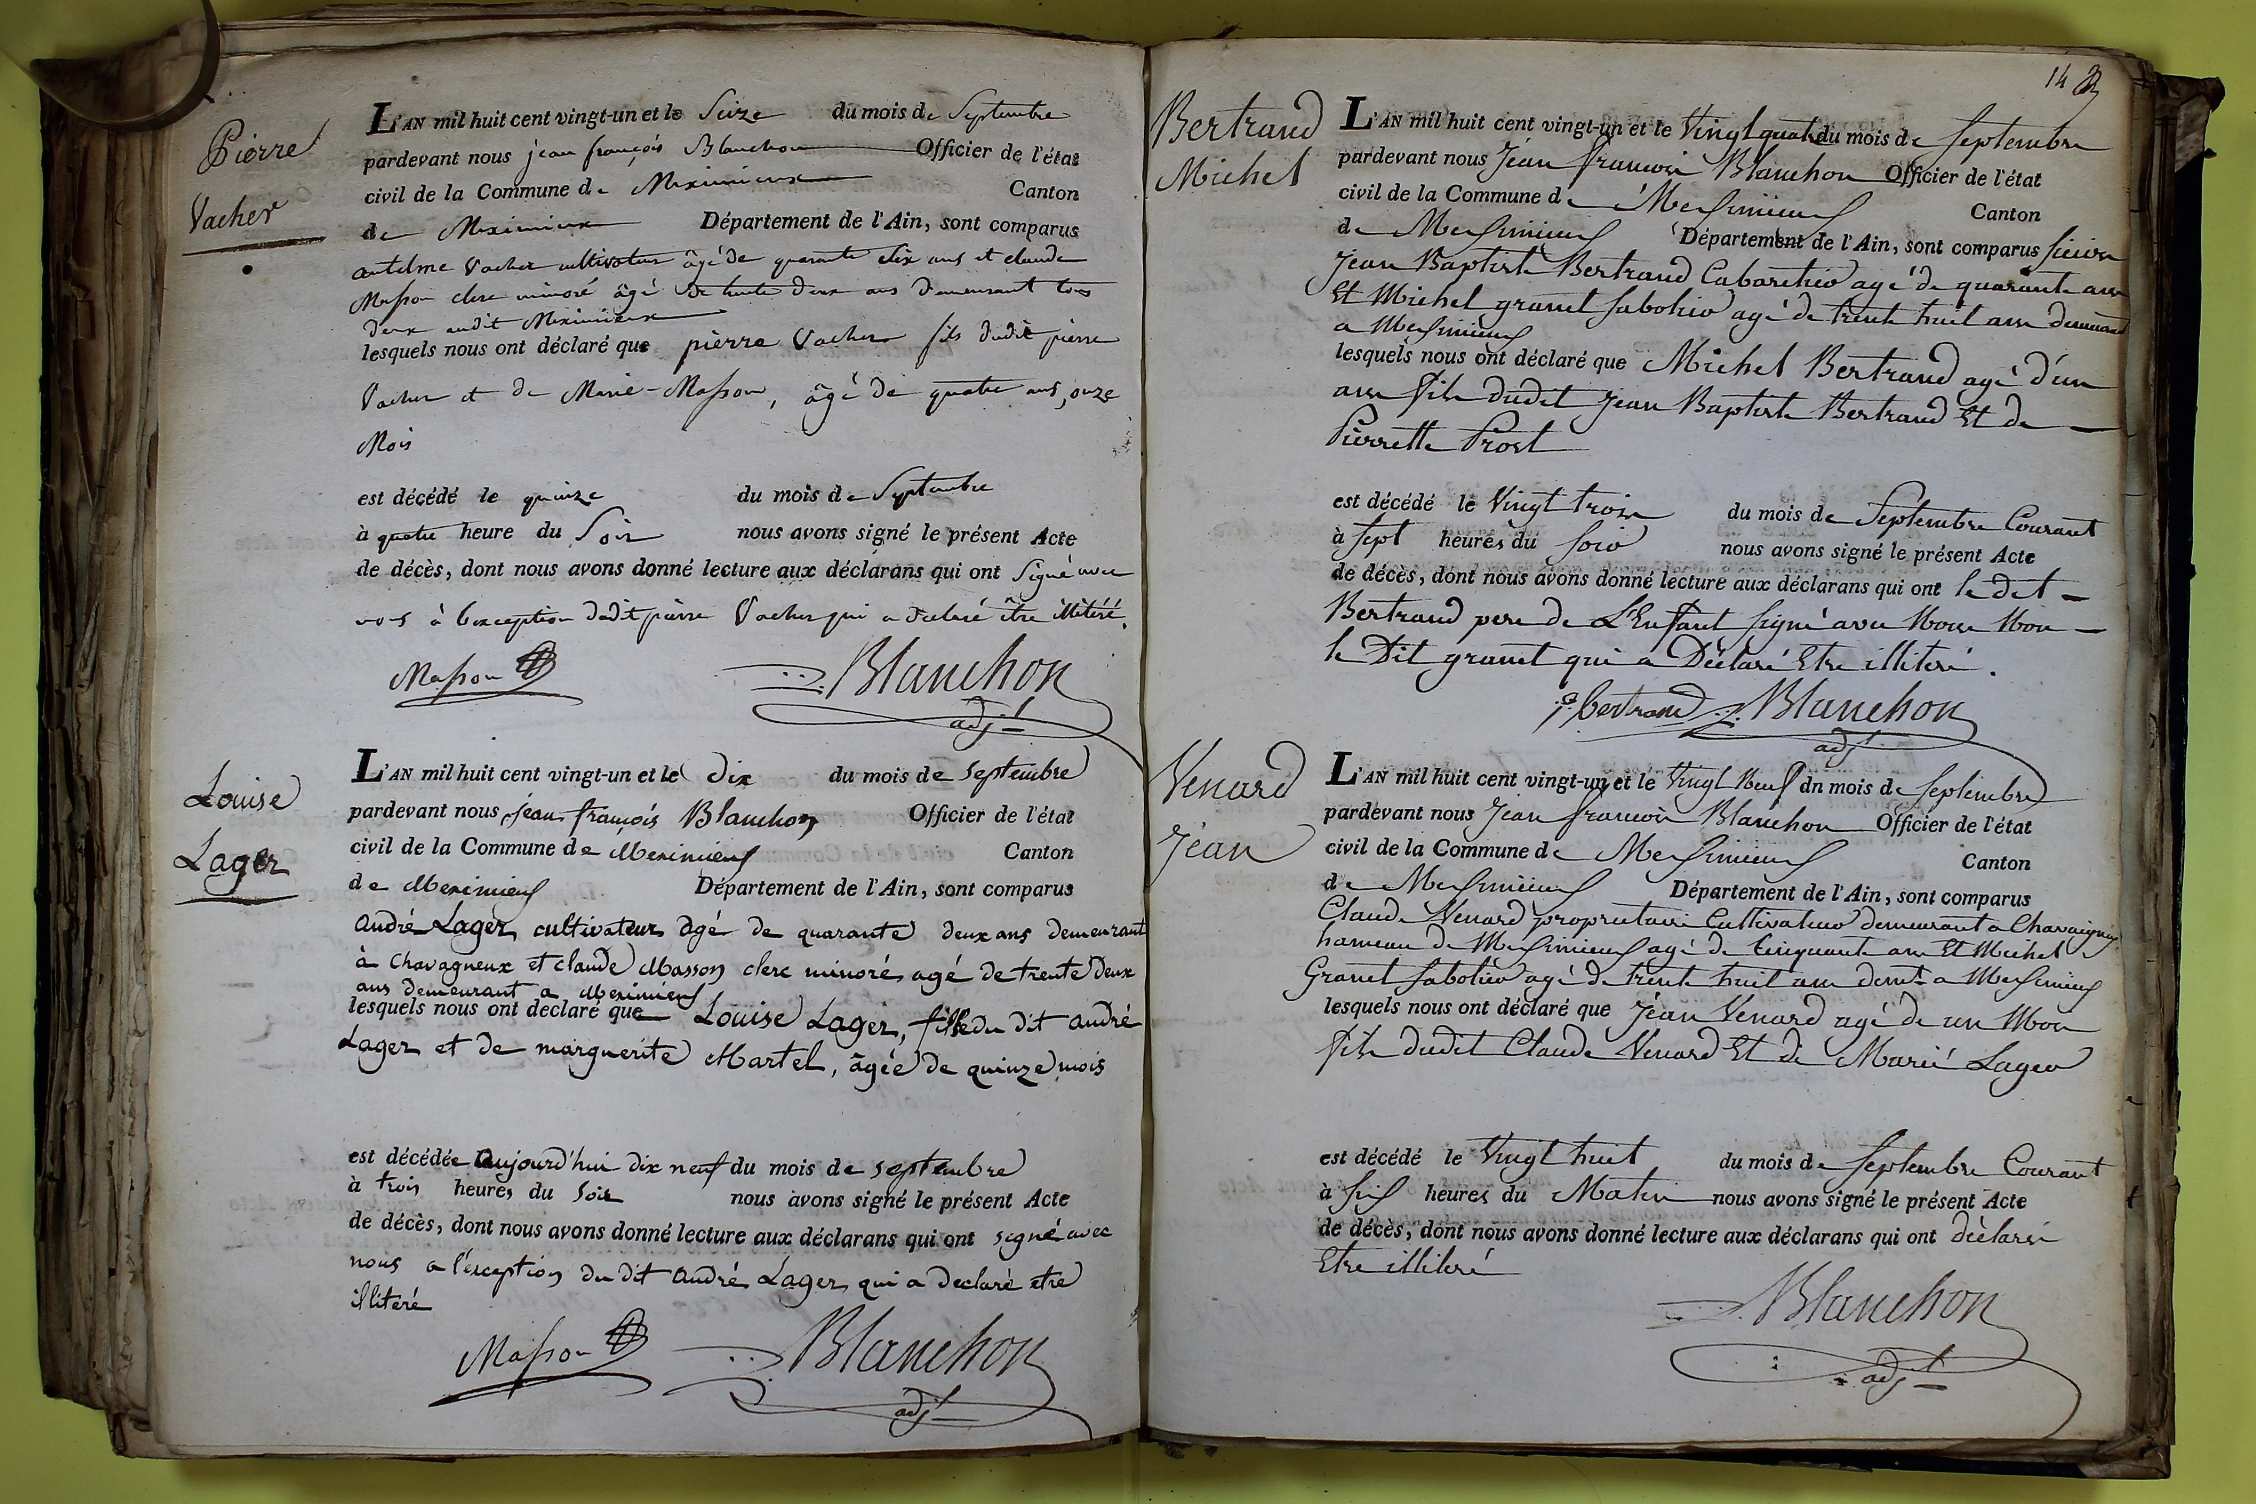 Pierre
Vacher
L'AN mil huit cent vingt-un et le Seize du mois de Septembre
pardevant nous jean françois Blanchon Officier de l'état
civil de la Commune de Meximieux Canton
de Meximieux Département de l'Ain, sont comparus
antelme Vacher cultivateur âgé de quarante six ans et claude
Masson clerc minoré âgé de trente deux ans demeurant tous
deux audit Meximieux
lesquels nous ont déclaré que pierre Vacher fils dudit pierre
Vacher et de Marie-Masson, âgé de quatre ans, onze
Mois
est décédé le quinze du mois de Septembre
à quatre heure du Soir nous avons signé le présent Acte
de décès, dont nous avons donné lecture aux déclarans qui ont Signé avec
nous à l'exception dudit pierre Vacher qui a déclaré être illitéré.
Masson Blanchon
adjt
Louise
Lager
L'AN mil huit cent vingt-un et le dix du mois de septembre
pardevant nous jean françois Blanchon Officier de l'état
civil de la Commune de Meximieux Canton
de Meximieux Département de l'Ain, sont comparus
andré Lager cultivateur agé de quarante deux ans demeurant
à chavagneux et claude Masson clerc minoré agé de trente deux
ans demeurant a Meximieux
lesquels nous ont déclaré que Louise Lager, fille du dit andré
Lager et de marguerite Martel, âgée de quinze mois
est décédée aujourd'hui dix neuf du mois de septembre
à trois heures du soir nous avons signé le présent Acte
de décès, dont nous avons donné lecture aux déclarans qui ont signé avec
nous a l'exception du dit andré Lager qui a declaré etre
illiteré
Masson Blanchon
adjt
14
Bertrand
Michel
L'AN mil huit cent vingt-un et le Vingt quatre du mois de Septembre
pardevant nous Jean francois Blanchon Officier de l'état
civil de la Commune de Messimieux Canton
de Messimieux Département de l'Ain, sont comparus
Jean Baptiste Bertrand Cabaretier agé de quarante ans
Et Michel granet Sabotier agé de trente huit ans demeurant
a Messimieux
lesquels nous ont déclaré que Michel Bertrand agé d'un
ans fils dudit Jean Baptiste Bertrand Et de
Pierrette Prost
est décédé le Vingt trois du mois de Septembre Courant
à Sept heures du Soir nous avons signé le présent Acte
de décès, dont nous avons donné lecture aux déclarans qui ont le dit
Bertrand pere de L'Enfant signé avec Nous Non
le Dit granet qui a Déclaré Etre illiteré.
Bertrand Blanchon
adjt
Venard
Jean
L'AN mil huit cent vingt-un et le Vingt Neuf du mois de Septembre
pardevant nous Jean francois Blanchon Officier de l'état
civil de la Commune de Messimieux Canton
de Messimieux Département de l'Ain, sont comparus
Claude Venard proprietaire Cultivateur demeurant a Chavagneux
hameau de Messimieux agé de Cinquante ans Et Michel
Granet Sabotier agé de trente huit ans demt a Messimieux
lesquels nous ont déclaré que Jean Venard agé de un Mois
fils dudit Claude Venard Et de Marie Lager
est décédé le Vingt huit du mois de Septembre Courant
à Six heures du Matin nous avons signé le présent Acte
de décès, dont nous avons donné lecture aux déclarans qui ont déclaré
Etre illiteré
Blanchon
adjt